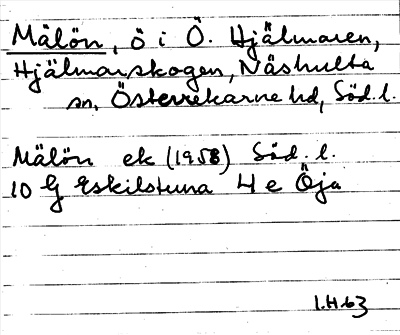 Mälön, ö i Ö. Hjälmaren,
Hjälmarskogen, Näshulta
sn, Österrekarne hd, Söd. l.
Mälön ek (1958) Söd. l.
10 G Eskilstuna 4 e Öja
I.H. 63